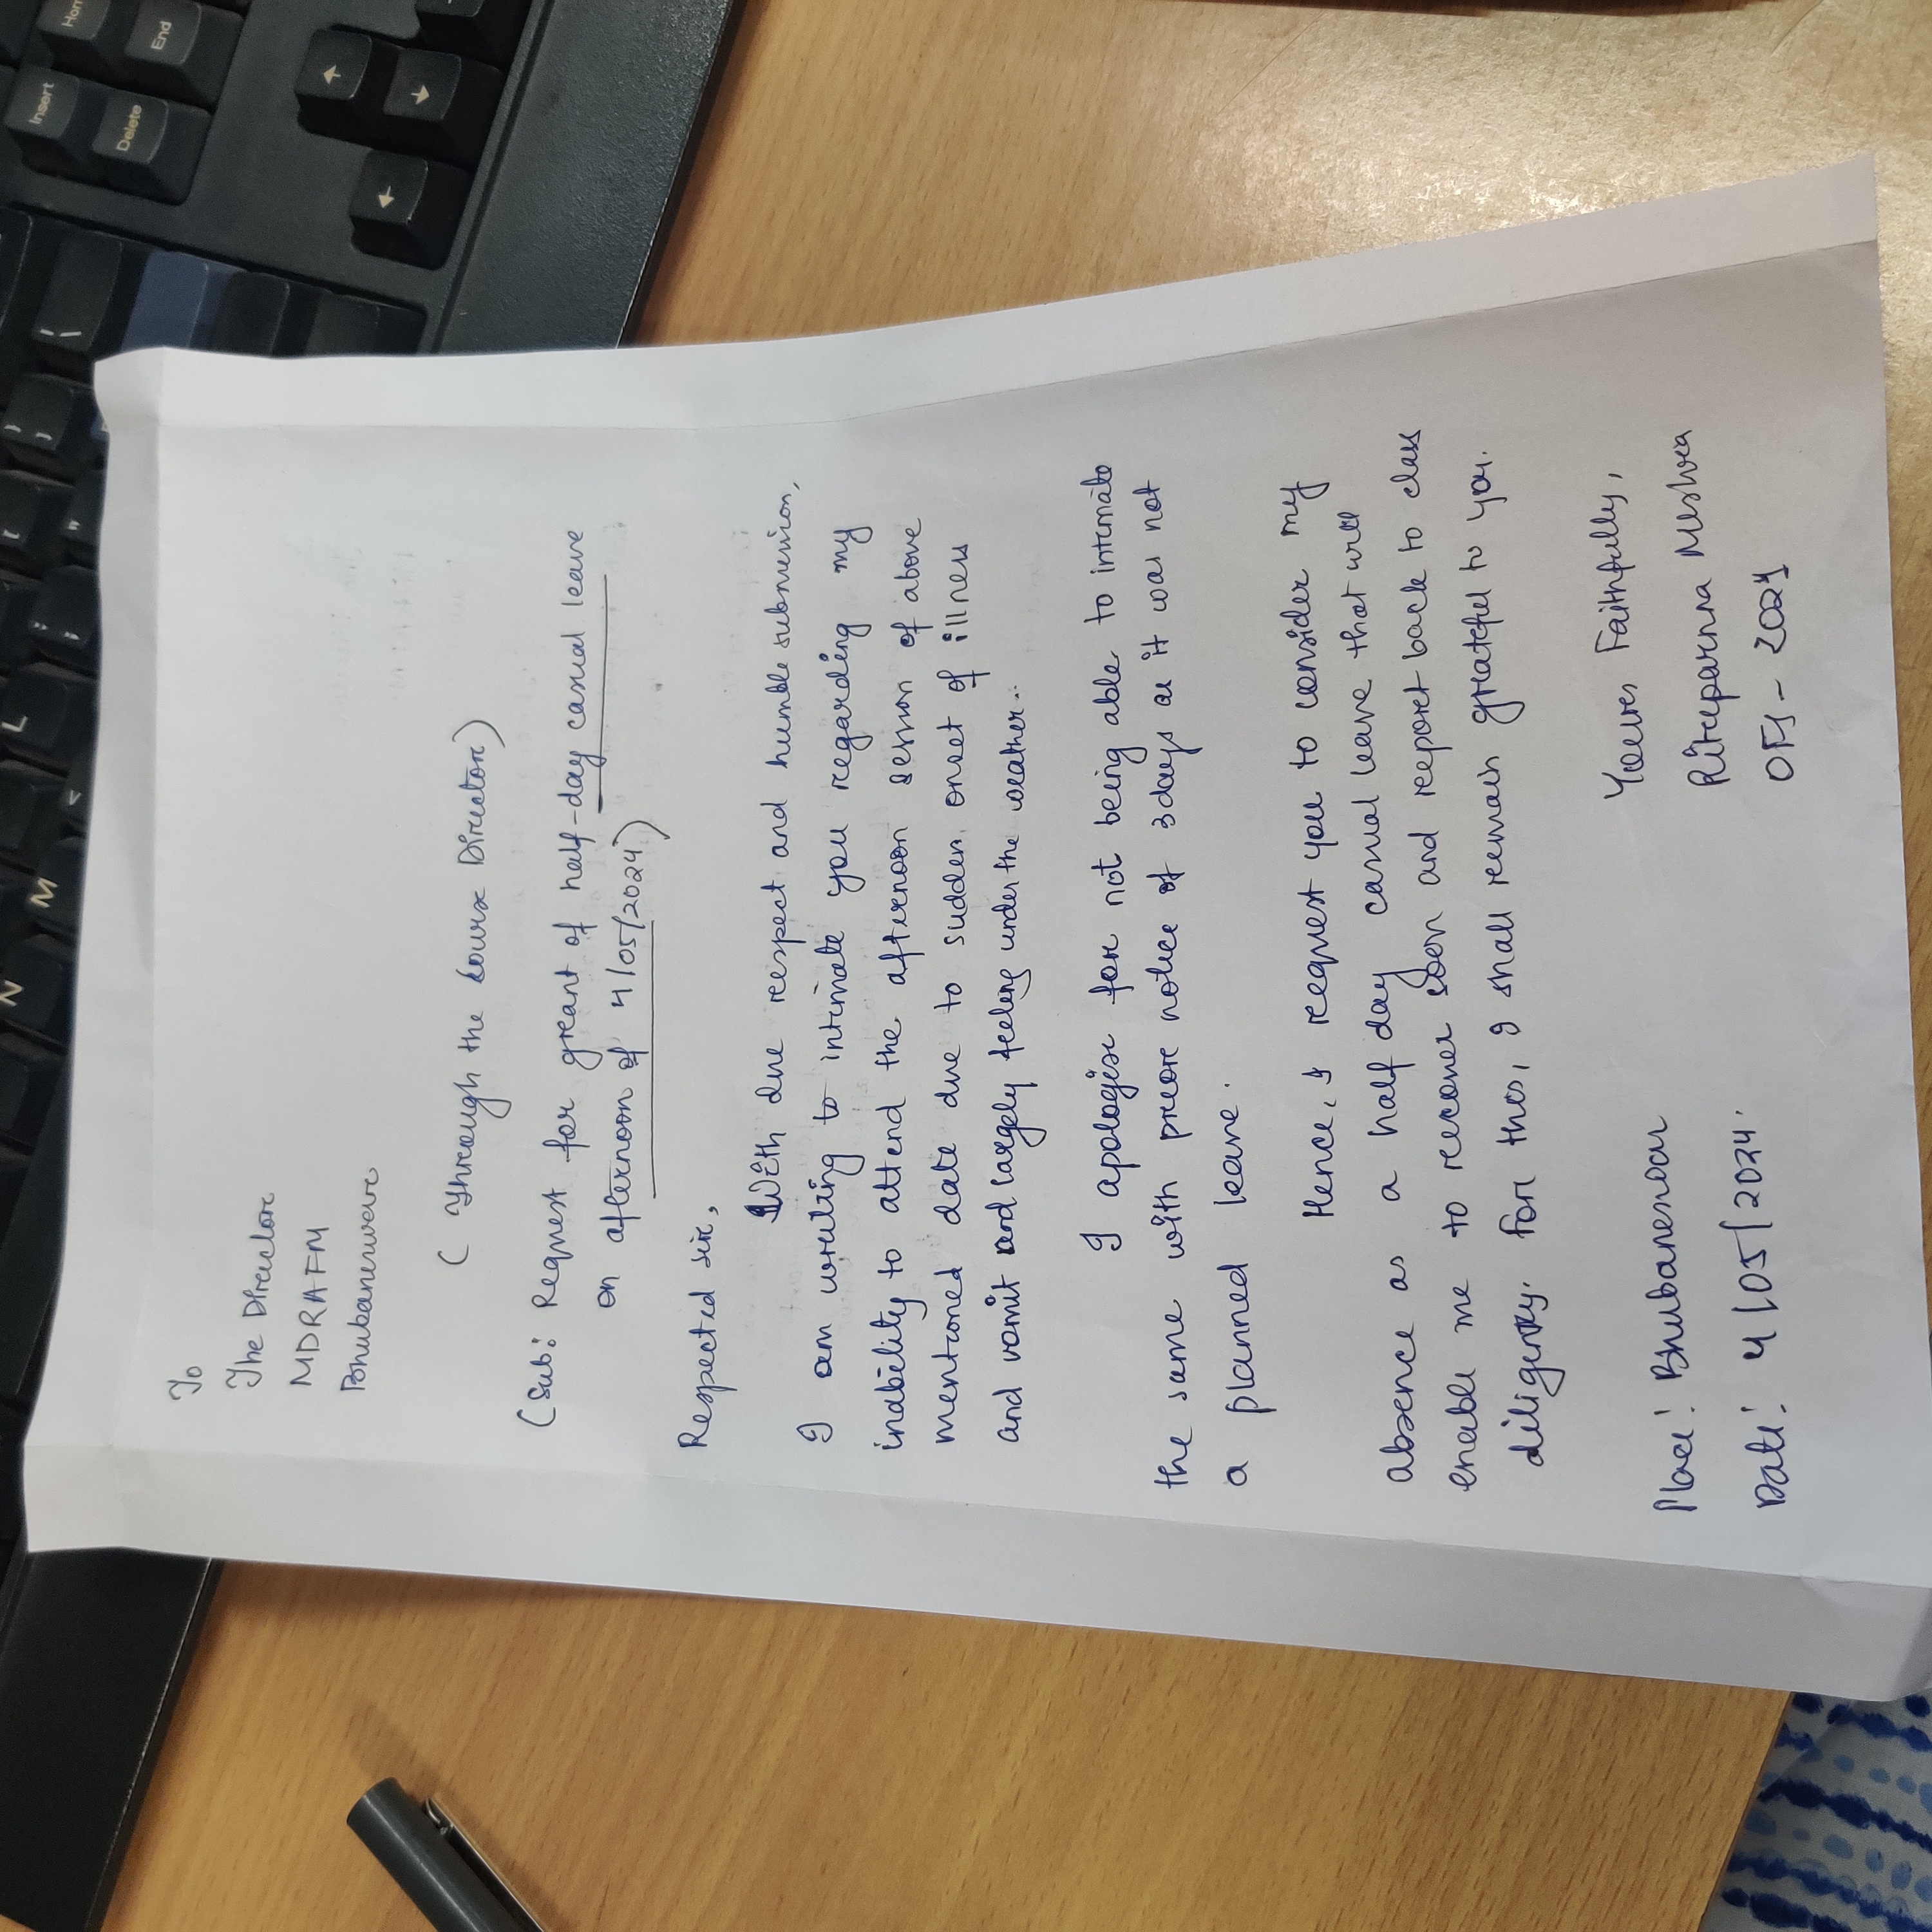 N
M
L
<
:
;
"
{
[
}
]
|
\
Insert
Hom
Delete
End
↑
←
↓
To
The Director
MDRAFM
Bhubaneswar
( Through the Course Director)
(Sub: Request for grant of half-day casual leave
on afternoon of 4/05/2024)
Respected sir,
With due respect and humble submission,
I am writing to intimate you regarding my
inability to attend the afternoon session of above
mentioned date due to sudden onset of illness
and vomit and largely feeling under the weather..
I apologise for not being able to intimate
the same with prior notice of 3 days as it was not
a planned leave.
Hence, I request you to consider my
absence as a half day casual leave that will
enable me to recover soon and report back to class
diligently. For this, I shall remain grateful to you.
Yours Faithfully,
Place: Bhubaneswar
Rituparnna Mishra
Date: 4/05/2024.
OFS - 2021